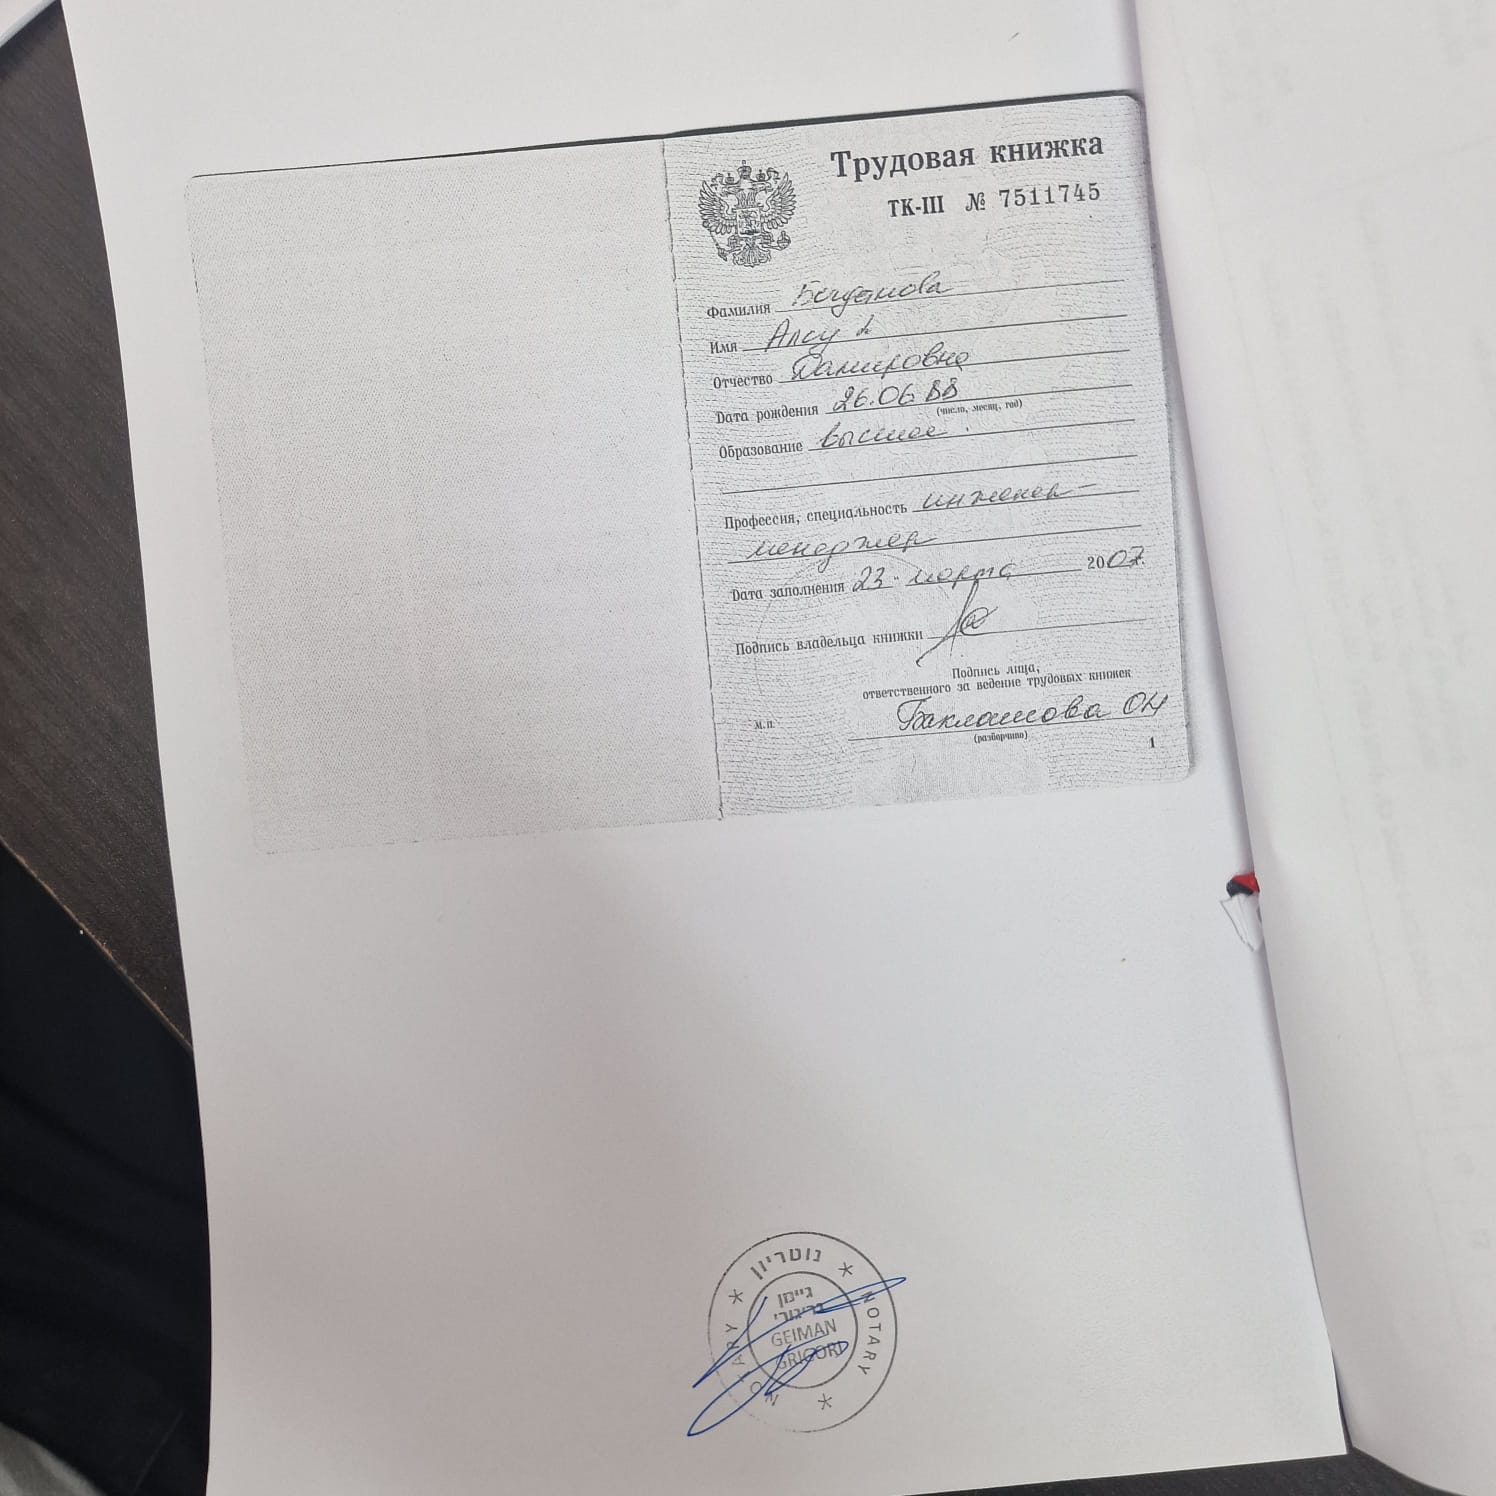 Трудовая книжка
ТК-III № 7511745
Фамилия Богданова
Имя Алсу
Отчество Дамировна
Дата рождения 26.06.88
(число, месяц, год)
Образование высшее.
Профессия, специальность инженер-
менеджер
Дата заполнения 23 марта 2007.
Подпись владельца книжки
Подпись лица,
ответственного за ведение трудовых книжек
М.П.
(разборчиво)
1
נוטריון
NOTARY
NOTARY
גיימן
גריגורי
GEIMAN
GRIGORI